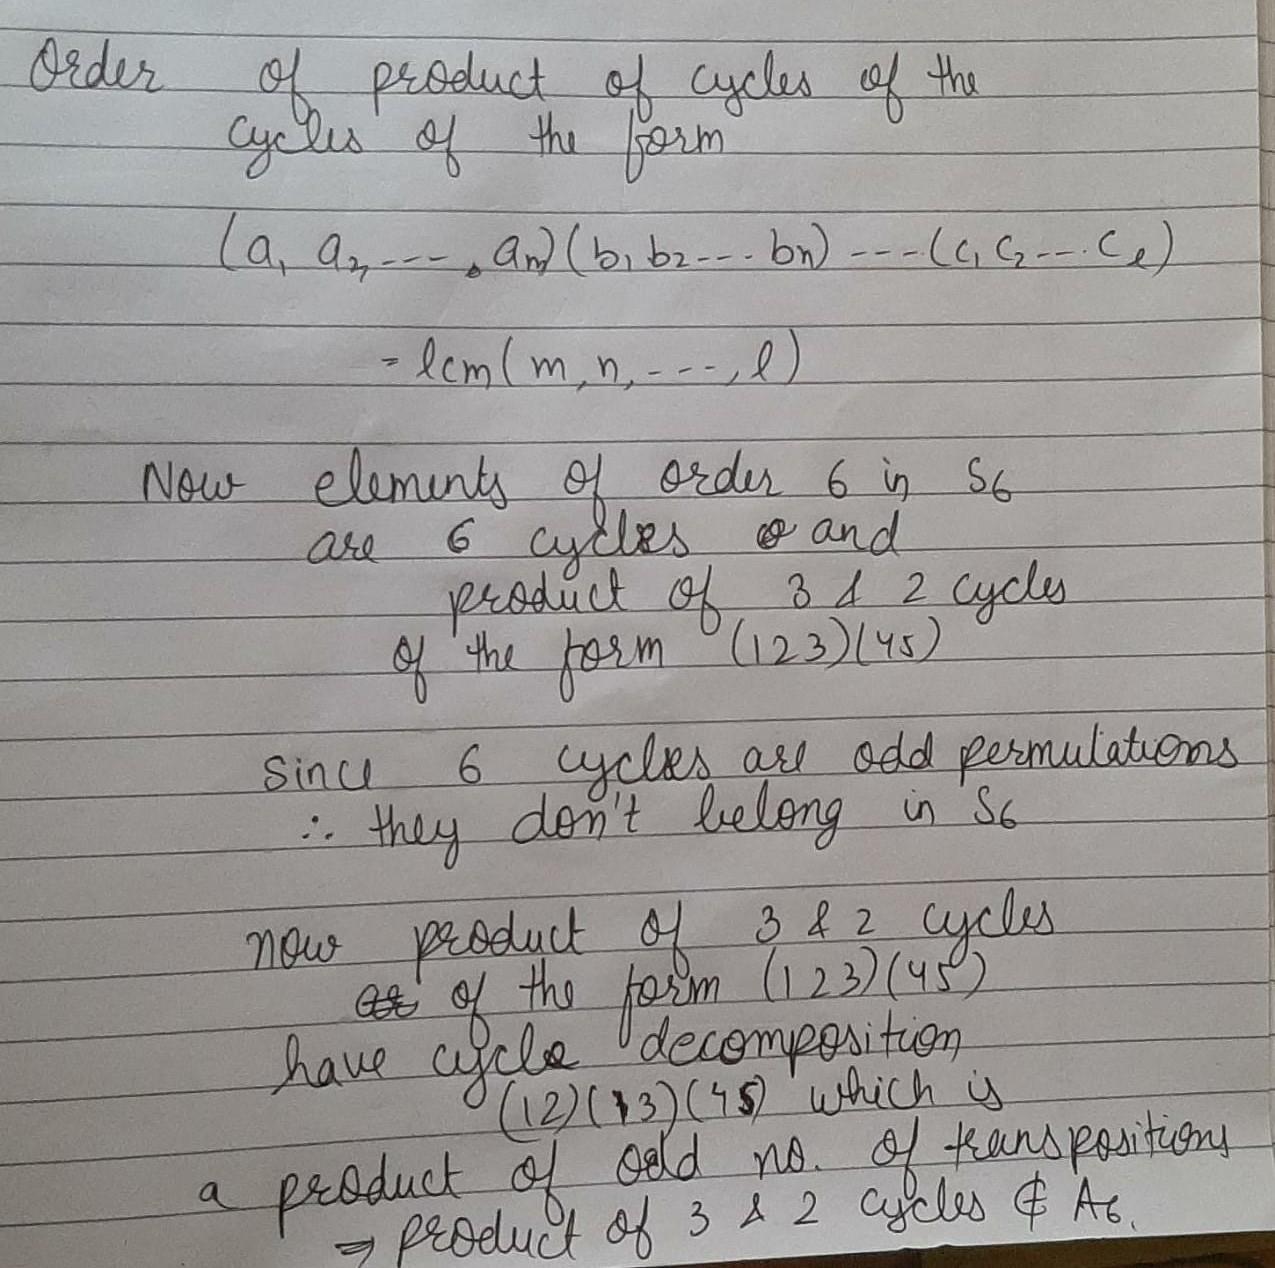 Order of product of cycles of the
cycles of the form
(a₁ a₂, ---, aₘ)(b₁ b₂ --- bₙ) ---(c₁ c₂ --- cₗ)
= lcm(m,n,---,l)
Now elements of order 6 in S₆
are 6 cycles and
product of 3 & 2 cycles
of the form (123)(45)
since 6 cycles are odd permulations
∴ they don't belong in S₆
now product of 3 & 2 cycles
of the form (123)(45)
have cycle decomposition
(12)(13)(45) which is
a product of odd no. of transpositions
⇒ product of 3 & 2 cycles ∉ A₆.